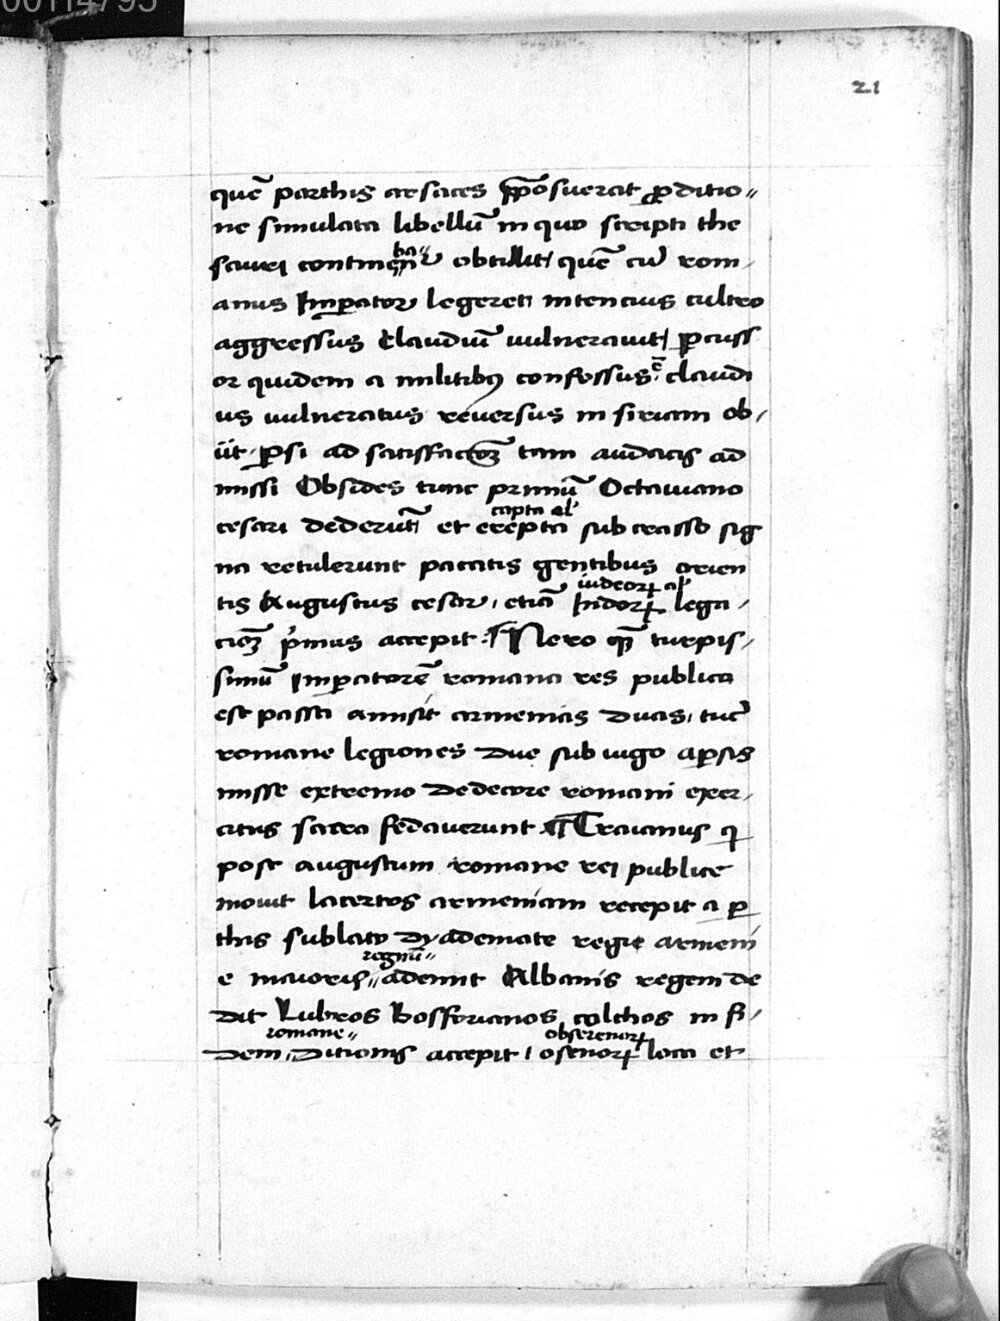 00114795
21
quē parthis arsaces p̄posuerat ꝓditio〃
ne simulata libellū in quo scripti the
sauri continen̄ť ba〃 obtulit quē cū rom
anus Imꝑator legeret intencius cultro
aggressus Claudiū uulnerauit ꝑcuss
or quidem a militibꝯ confossus ē claudi
us uulneratus reuersus in siriam ob
iit ꝑsi ad satisfaccōꝫ tam audacis ad
missi Obsides tunc primū Octauiano
capta al'
cesari dederūt et erepta sub crasso sig
na retulerunt pacatis gentibus orien
iudeoꝝ al'
tis Augustus cesar, etiā Indoꝝ lega
cioꝫ p'mus accepit ¶ Nero q̄ȝ turpis
simū Imꝑatorē romana res publica
est passa amisit armenias duas, tūc
romane legiones due sub iugo aꝑsis
misse extremo dedecore romani exer
citus sacra fedauerunt ¶ Traianus q
post augustum romane rei publice
mouit lacertos armeniam recepit a ꝑ
this sublato dyademate regie armeni
regnū〃
e maioris〃 ademit Albanis regem de
dit Kubros Bosforianos colchos in fi
romane〃 obserenoꝝ
dem, Ditionis accepit, osenoꝝ loca et